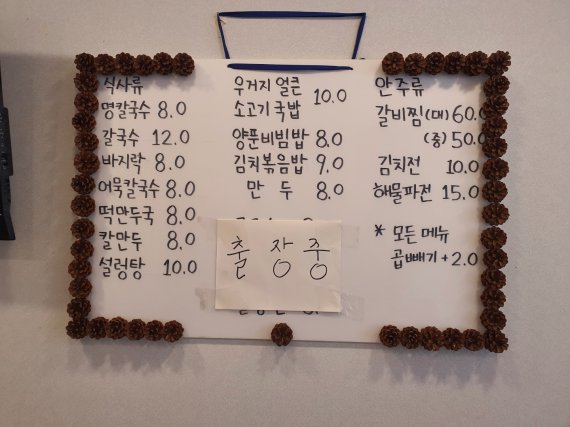 식사류
명칼국수 8.0
칼국수 12.0
바지락 8.0
어묵칼국수 8.0
떡만두국 8.0
칼만두 8.0
설렁탕 10.0
우거지 얼큰
소고기국밥 10.0
양푼비빔밥 8.0
김치볶음밥 9.0
만두 8.0
출장중
안주류
갈비찜(대) 60.0
(중) 50.0
김치전 10.0
해물파전 15.0
* 모든 메뉴
곱빼기 +2.0